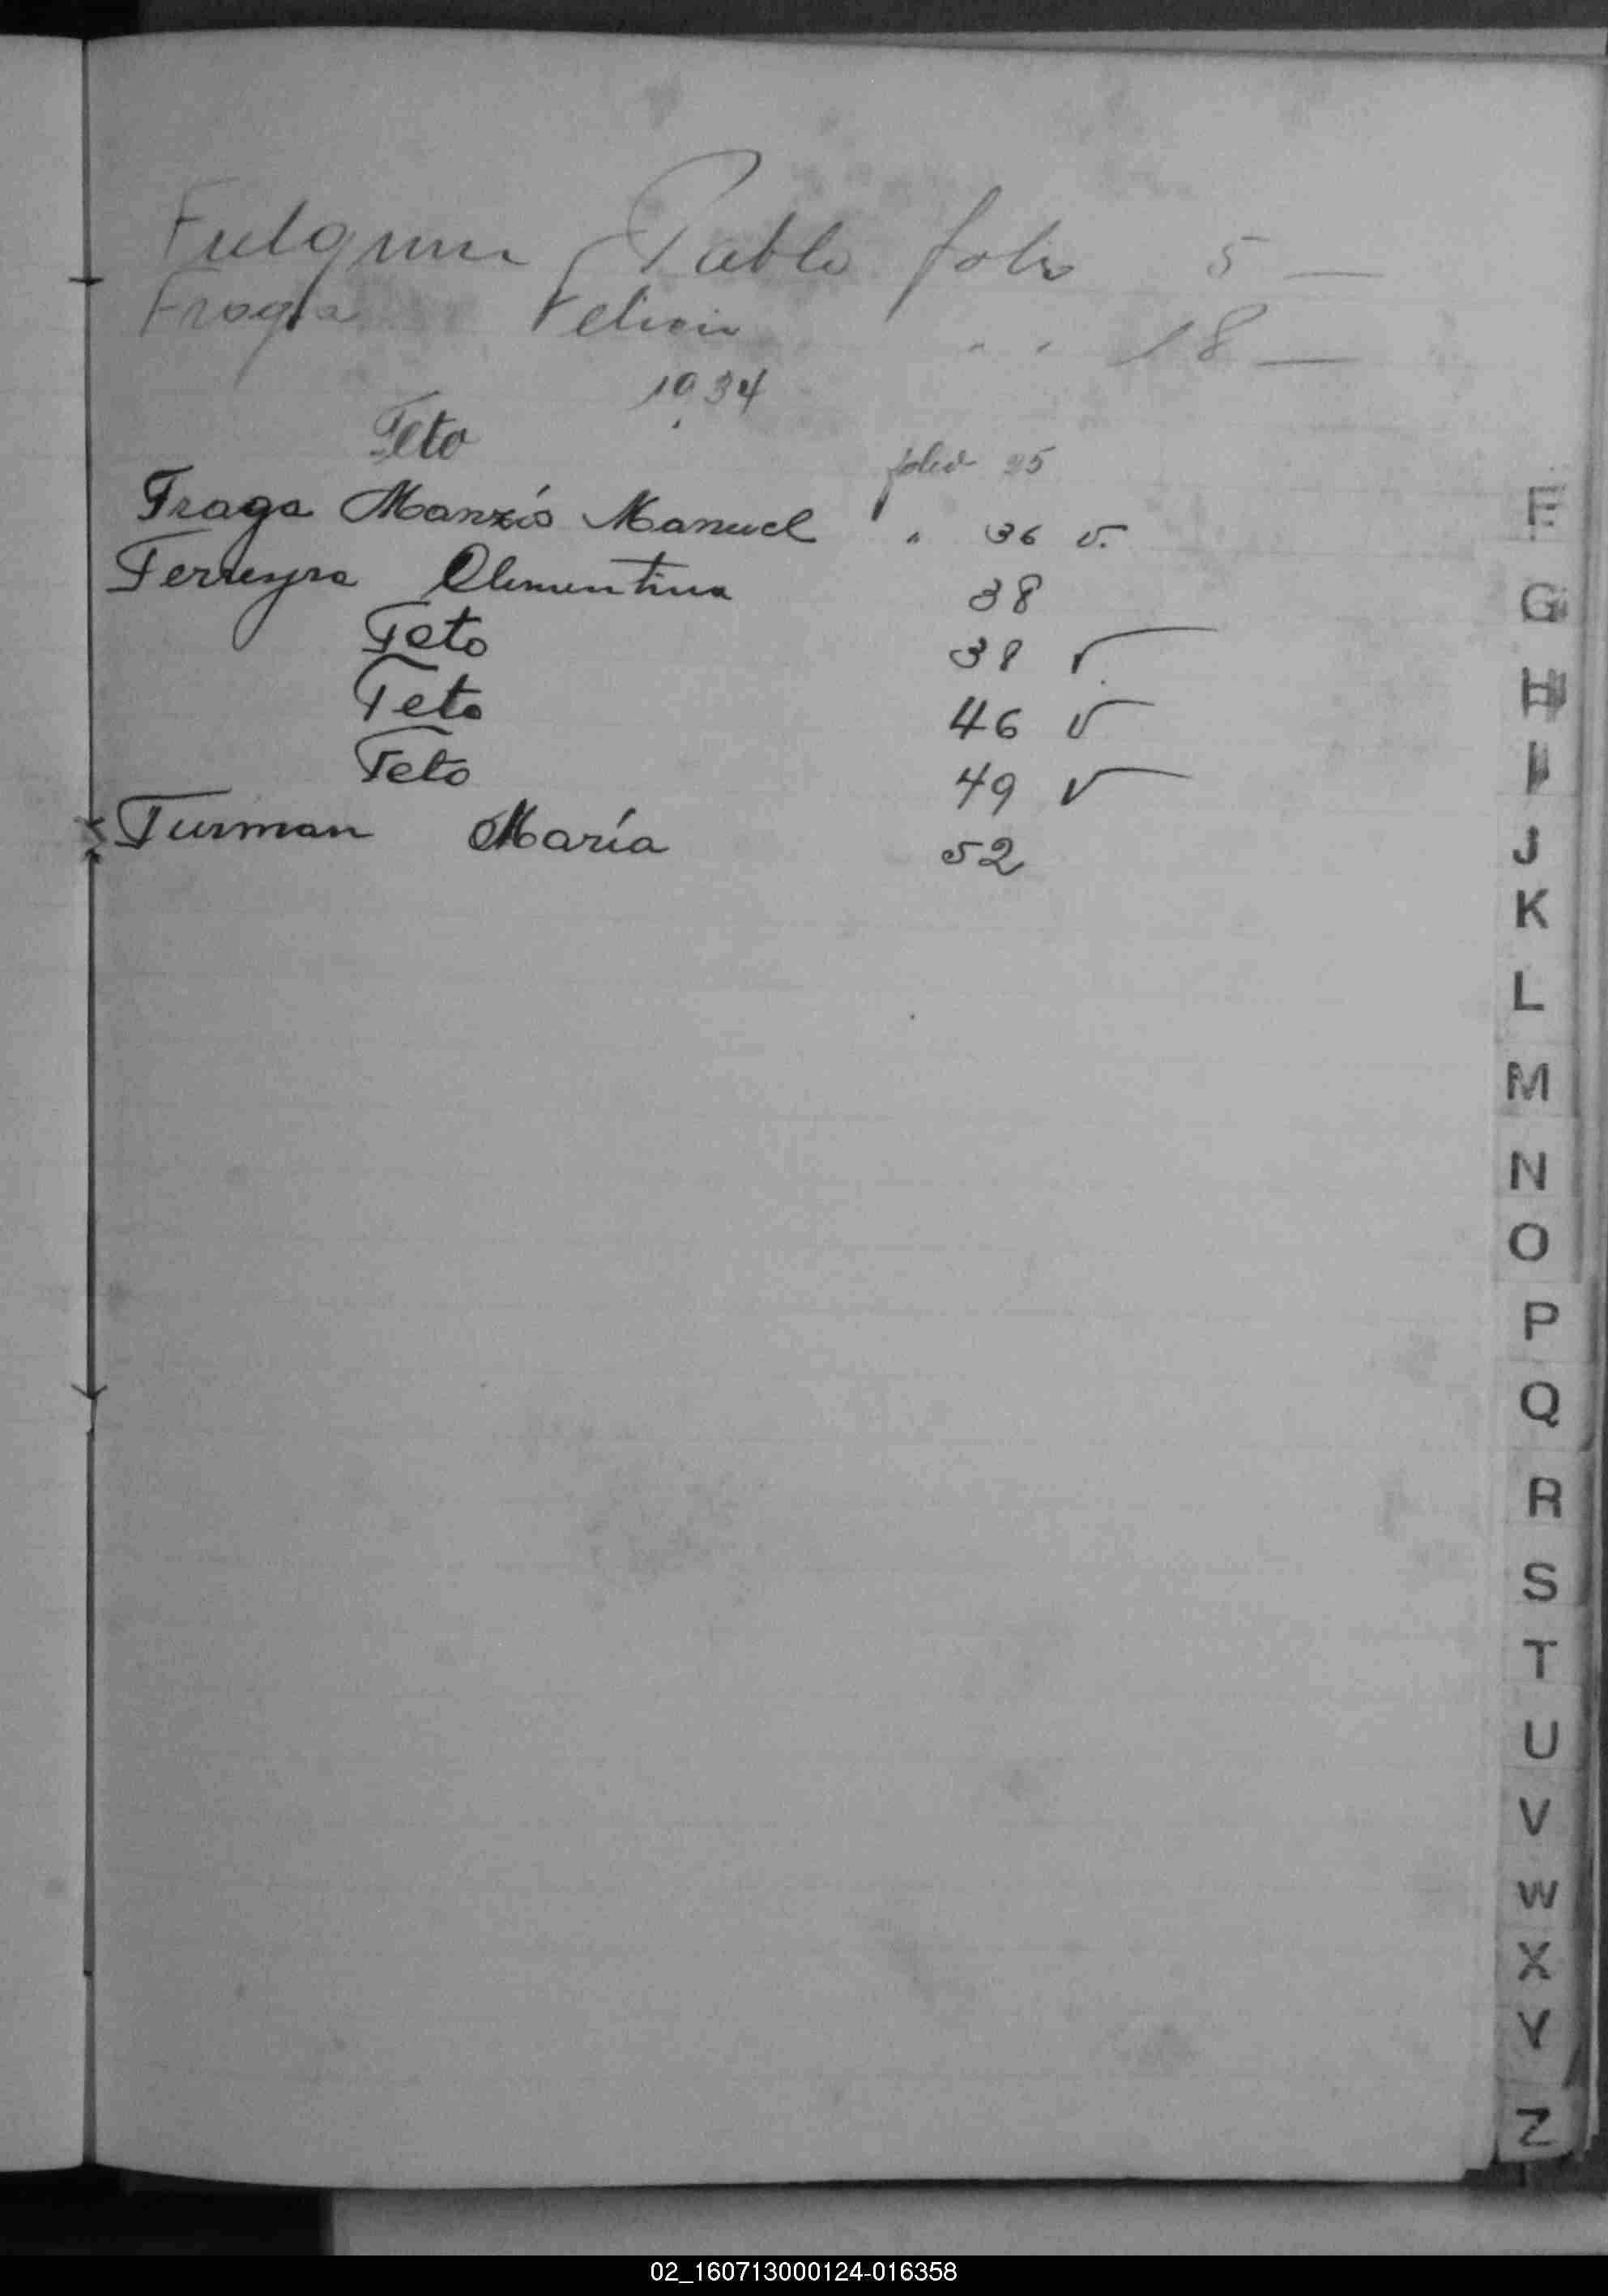 Pablo folio 5 —
Fraga Felicia " " 18 —
1934
Feto folio 25
Fraga Manzío Manuel " 36 v.
Ferreyra Clementina 38
Feto 38 v
Feto 46 v
Feto 49 v
Furman María 52
F
G
H
I
J
K
L
M
N
O
P
Q
R
S
T
U
V
W
X
Y
Z
02_160713000124-016358